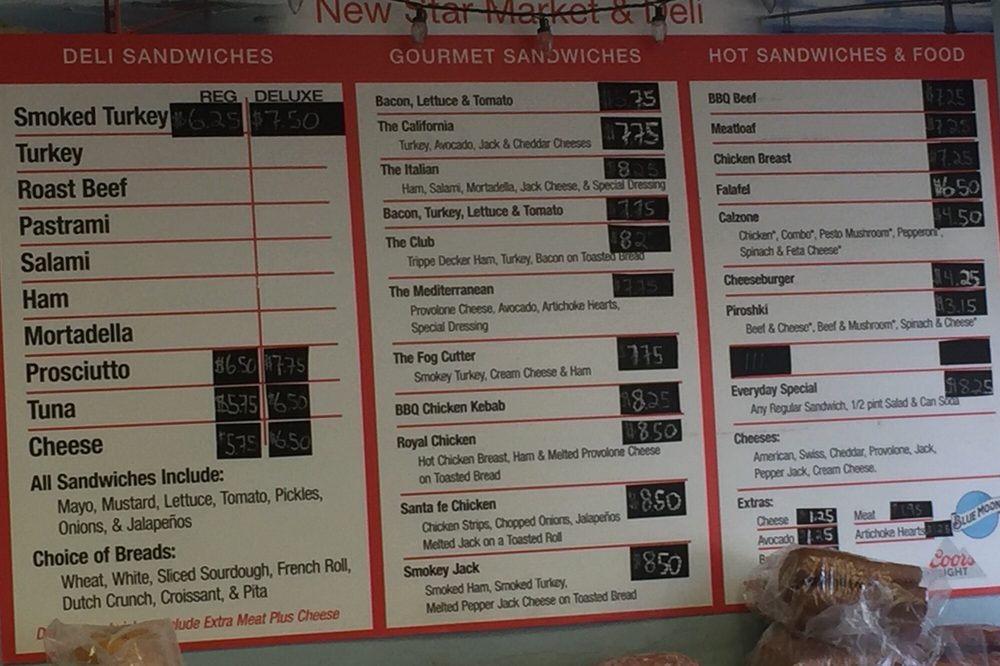 New Star Market & Deli
DELI SANDWICHES
REG DELUXE
Smoked Turkey $6.25 $7.50
Turkey
Roast Beef
Pastrami
Salami
Ham
Mortadella
Prosciutto $6.50 $7.75
Tuna $5.75 $6.50
Cheese 5.75 $6.50
All Sandwiches Include:
Mayo, Mustard, Lettuce, Tomato, Pickles,
Onions, & Jalapeños
Choice of Breads:
Wheat, White, Sliced Sourdough, French Roll,
Dutch Crunch, Croissant, & Pita
Include Extra Meat Plus Cheese
GOURMET SANDWICHES
Bacon, Lettuce & Tomato
The California 7.75
Turkey, Avocado, Jack & Cheddar Cheeses
The Italian 8.25
Ham, Salami, Mortadella, Jack Cheese, & Special Dressing
Bacon, Turkey, Lettuce & Tomato 7.75
The Club
Trippe Decker Ham, Turkey, Bacon on Toasted Bread
The Mediterranean 7.75
Provolone Cheese, Avocado, Artichoke Hearts,
Special Dressing
The Fog Cutter 7.75
Smokey Turkey, Cream Cheese & Ham
BBQ Chicken Kebab $8.25
Royal Chicken $8.50
Hot Chicken Breast, Ham & Melted Provolone Cheese
on Toasted Bread
Santa fe Chicken $8.50
Chicken Strips, Chopped Onions, Jalapeños
Melted Jack on a Toasted Roll
Smokey Jack $8.50
Smoked Ham, Smoked Turkey,
Melted Pepper Jack Cheese on Toasted Bread
HOT SANDWICHES & FOOD
BBQ Beef $7.25
Meatloaf $7.25
Chicken Breast $7.25
Falafel $6.50
Calzone $4.50
Chicken*, Combo*, Pesto Mushroom*, Pepperoni*,
Spinach & Feta Cheese*
Cheeseburger $4.25
Piroshki $3.15
Beef & Cheese*, Beef & Mushroom*, Spinach & Cheese*
Everyday Special $18.25
Any Regular Sandwich, 1/2 pint Salad & Can Soda
Cheeses:
American, Swiss, Cheddar, Provolone, Jack,
Pepper Jack, Cream Cheese.
Extras:
Cheese 1.25 Meat
Avocado 1.25 Artichoke Hearts
BLUE MOON
Coors
LIGHT